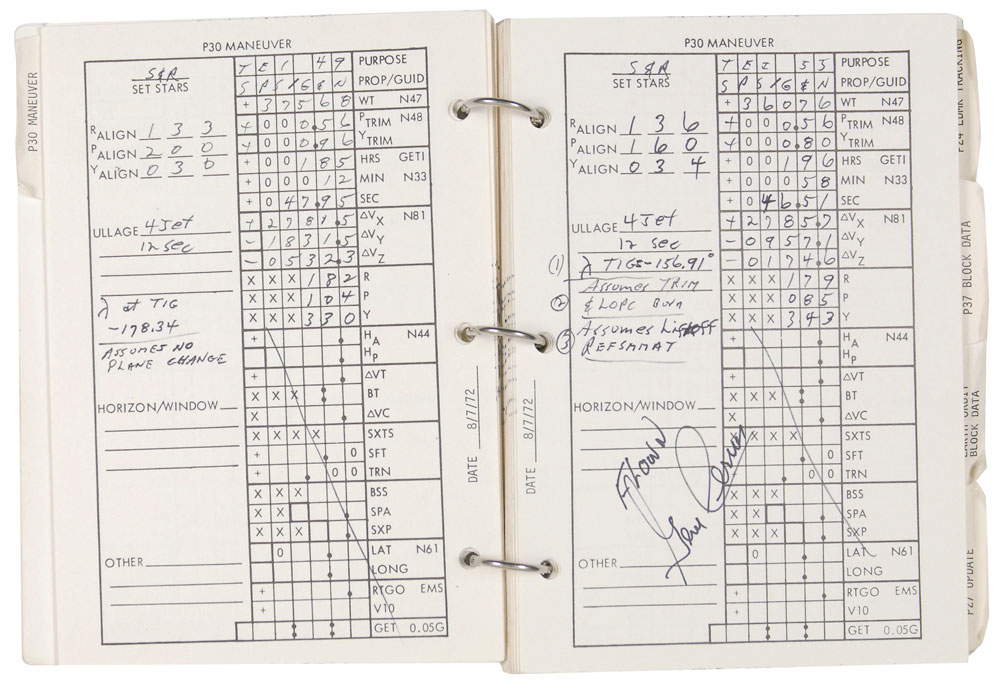 P30 MANEUVER
P30 MANEUVER
T E I 4 9 PURPOSE
S P S / G & N PROP/GUID
S & R
SET STARS
+ 3 7 5 6 8 WT N47
+ 0 0 0.5 6 PTRIM N48
+ 0 0 0.9 6 YTRIM
RALIGN 1 3 3
PALIGN 2 0 0
YALIGN 0 3 0
+ 0 0 1 8 5 HRS GETI
+ 0 0 0 1 2 MIN N33
+ 0 4 7.9 5 SEC
+ 2 7 8 1.5 ΔVX N81
- 1 8 3 1.5 ΔVY
- 0 5 3 2.3 ΔVZ
ULLAGE 4 Jet
12 sec
X X X 1 8 2 R
X X X 1 0 4 P
X X X 3 3 0 Y
λ at TIG
-178.34
ASSUMES NO
PLANE CHANGE
+ HA N44
HP
+ ΔVT
X X X BT
X ΔVC
HORIZON/WINDOW
X X X X SXTS
+ 0 SFT
+ 0 0 TRN
X X X BSS
X X SPA
X X X SXP
OTHER
0 LAT N61
LONG
+ RTGO EMS
+ V10
GET 0.05G
DATE 8/7/72
P30 MANEUVER
T E I 5 5 PURPOSE
S P S / G & N PROP/GUID
S & R
SET STARS
+ 3 6 0 7 6 WT N47
+ 0 0 0.5 6 PTRIM N48
+ 0 0 0.8 0 YTRIM
RALIGN 1 3 6
PALIGN 1 6 0
YALIGN 0 3 4
+ 0 0 1 9 6 HRS GETI
+ 0 0 0 5 8 MIN N33
+ 0 4 6.5 1 SEC
+ 2 7 8 5.7 ΔVX N81
- 0 9 5 7.1 ΔVY
- 0 1 7 4.6 ΔVZ
ULLAGE 4 Jet
12 sec
(1) λ TIG=-156.91°
(2) Assumes TRIM
& LOPC Burn
(3) Assumes Liftoff
REFSMMAT
X X X 1 7 9 R
X X X 0 8 5 P
X X X 3 4 3 Y
+ HA N44
HP
+ ΔVT
X X X BT
X ΔVC
HORIZON/WINDOW
X X X X SXTS
+ 0 SFT
+ 0 0 TRN
X X X BSS
X X SPA
X X X SXP
FLOWN
Gene Cernan
OTHER
0 LAT N61
LONG
+ RTGO EMS
+ V10
GET 0.05G
DATE 8/7/72
P24 LDMK TRACKING
P37 BLOCK DATA
EARTH ORBIT
BLOCK DATA
P27 UPDATE